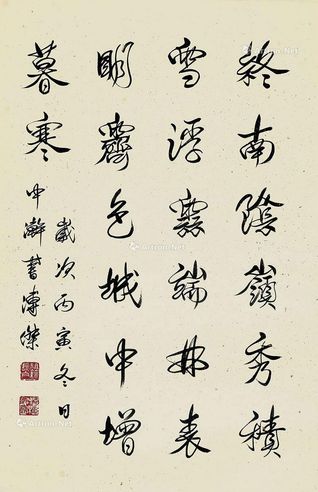 終南陰嶺秀積
雪浮雲端林表
明霽色城中增
暮寒
歲次丙寅冬日
中澣書溥傑
Artron.Net